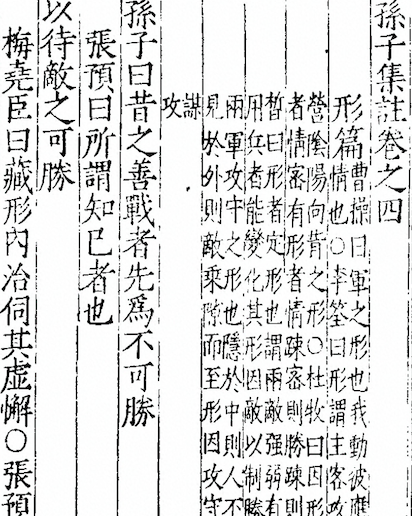 孫子集註卷之四
形篇
曹操曰軍之形也我動彼應
情也○李筌曰形謂主客攻
營陰陽向背之形○杜牧曰因形
者情密有形者情疎密則勝疎則
晳曰形者定形也謂兩敵强弱有
用兵者能變化其形因敵以制勝
兩軍攻守之形也隱於中則人不
見於外則敵乘隙而至形因攻守
謀
攻
孫子曰昔之善戰者先爲不可勝
張預曰所謂知已者也
以待敵之可勝
梅堯臣曰藏形內治伺其虛懈○張預